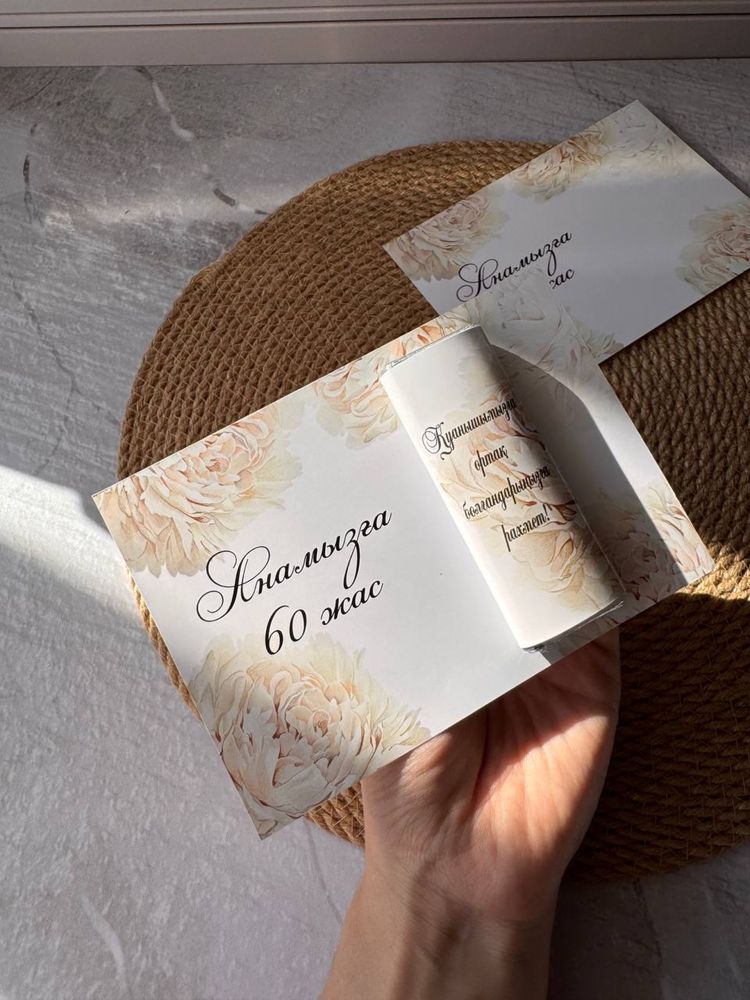 Анамызға
жас
Анамызға
60 жас
Қуанышымызға
ортақ
болғандарыңызға
рахмет!